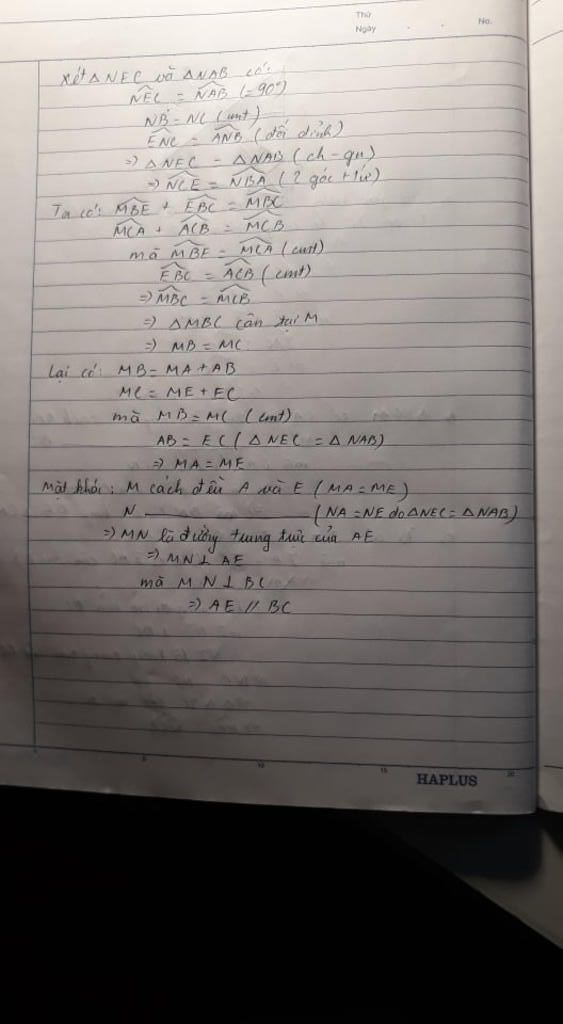 Thứ
Ngày . . No.
Xét △NEC và △NAB có:
$\widehat{NEC}$ = $\widehat{NAB}$ (= 90°)
NB = NC (cmt)
$\widehat{ENC}$ = $\widehat{ANB}$ (đối đỉnh)
=> △NEC = △NAB (ch - gn)
=> $\widehat{NCE}$ = $\widehat{NBA}$ (2 góc tứ)
Ta có: $\widehat{MBE}$ + $\widehat{EBC}$ = $\widehat{MBC}$
$\widehat{MCA}$ + $\widehat{ACB}$ = $\widehat{MCB}$
mà $\widehat{MBE}$ = $\widehat{MCA}$ (cmt)
$\widehat{EBC}$ = $\widehat{ACB}$ (cmt)
=> $\widehat{MBC}$ = $\widehat{MCB}$
=> △MBC cân tại M
=> MB = MC
Lại có: MB = MA + AB
MC = ME + EC
mà MB = MC (cmt)
AB = EC (△NEC = △NAB)
=> MA = ME
Mặt khác: M cách đều A và E (MA = ME)
N ________ (NA = NE do △NEC = △NAB)
=> MN là đường trung trực của AE
=> MN ⊥ AE
mà MN ⊥ BC
=> AE // BC
5 10 15 20
HAPLUS